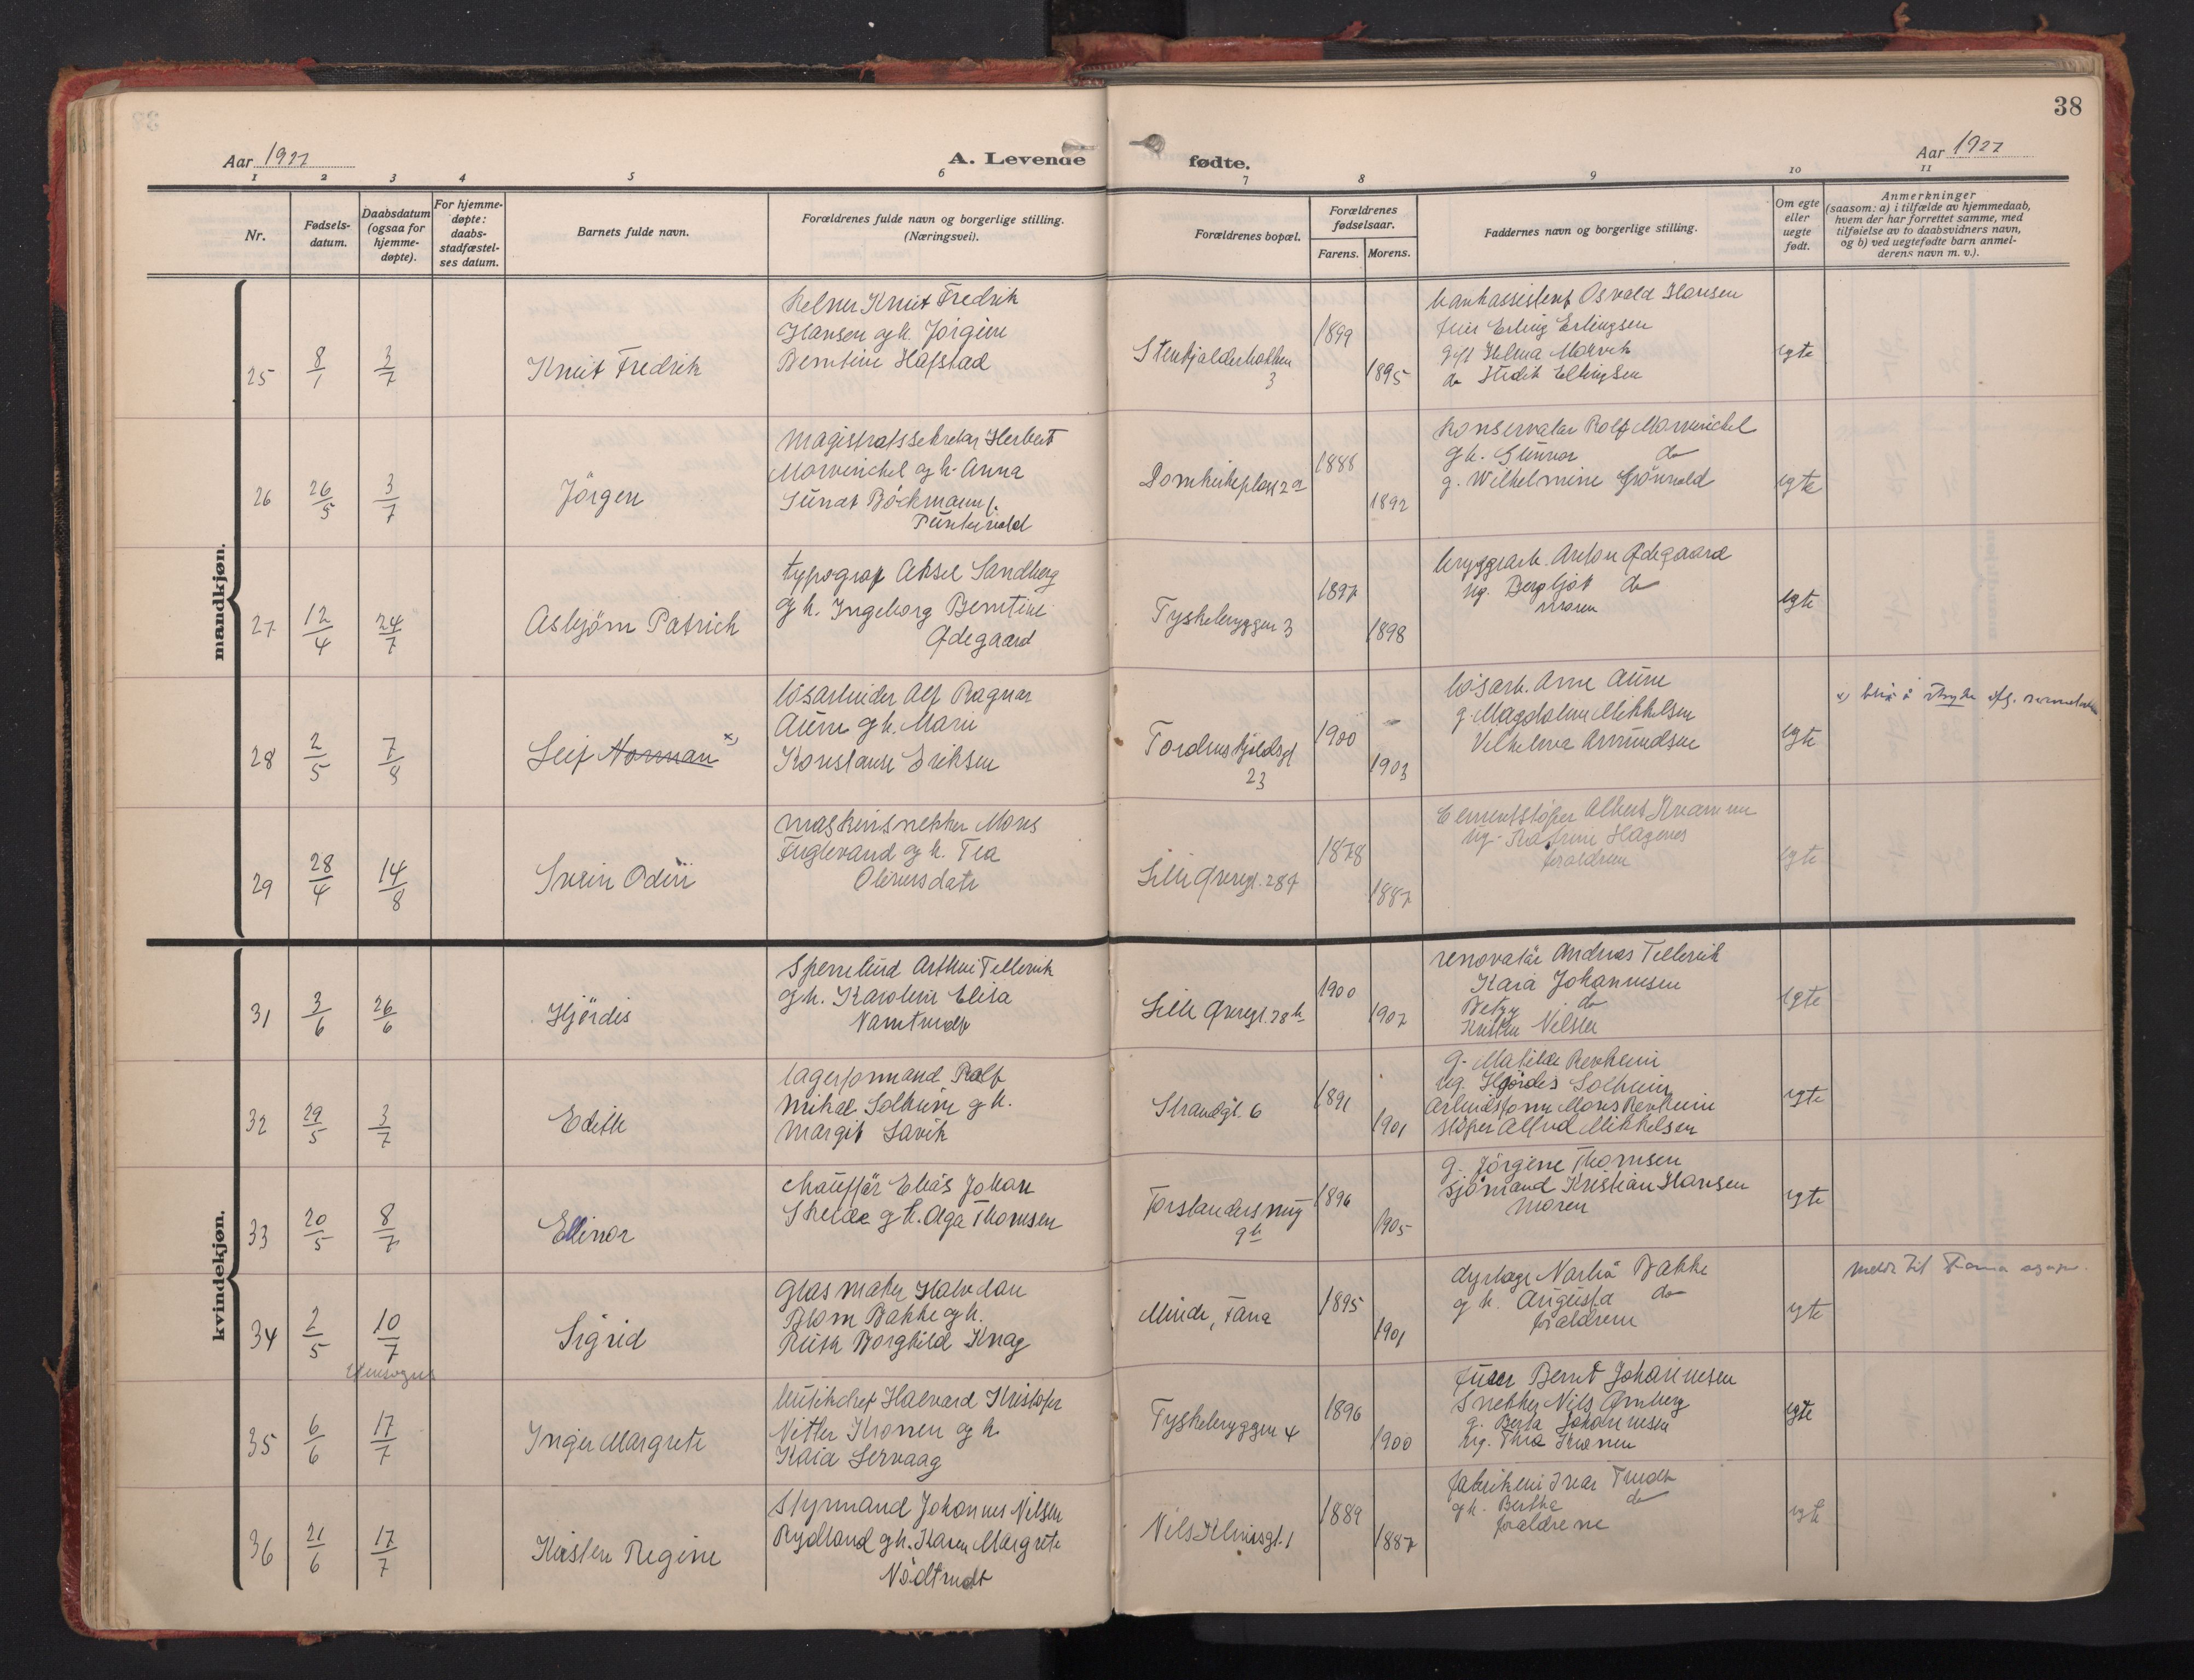 38
Aar 1927
A. Levende fødte.
Aar 1927
1 2 3 4 5 6 7 8 9 10 11
Nr.
Fødsels-
datum.
Daabsdatum
(ogsaa for
hjemme-
døpte).
For hjemme-
døpte:
daabs-
stadfæstel-
ses datum.
Barnets fulde navn.
Forældrenes fulde navn og borgerlige stilling.
(Næringsvei).
Forældrenes bopæl.
Forældrenes
fødselsaar.
Farens. Morens.
Faddernes navn og borgerlige stilling.
Om egte
eller
uegte
født.
Anmerkninger
(saasom: a) i tilfælde av hjemmedaab,
hvem der har forrettet samme, med
tilføielse av to daabsvidners navn,
og b) ved uegtefødte barn anmel-
derens navn m. v.).
mandkjøn.
25
8/1
3/7
Knut Fredrik
kelner Knut Fredrik
Hansen og h. Jörgine
Berntine Hafstad
3
1899
1895
bankassistent Osvald Hansen
Erling Erlingsen
gift Helma
do Ellingsen
egte
26
26/5
3/7
Jörgen
magistratssekretær Herbert
og h. Anna
Böckmann f.
Domkirkeplass 2a
1888
1892
konservator Rolf
g h. Gunvor do
g. Wilhelmine Grönvold
egte
27
12/4
24/7
Asbjörn Patrick
typograf Aksel Sandberg
og h. Ingeborg Berntine
Ødegaard
Tyskebryggen 3
1897
1898
bryggearb. Anton Ødegaard
ug. Bergljot do
moren
egte
28
2/5
7/8
Leif Norman x)
lösarbeider Alf Ragnar
Aure g h. Marie
Konstanse Eriksen
Tordenskjoldsgt
23
1900
1903
lösarb. Arne Aure
g. Magdalene Mikkelsen
Vilhelma Amundsen
egte
x) blir å stryke
29
28/4
14/8
Svein Odin
maskinsnekker Mons
Fuglevand og h. Tea
Oliversdatr
Lille Øvregt. 28
1878
1887
Cementstöper Albert Kvamme
ug. Katrine Hagenes
foraldrene
egte
kvindekjøn.
31
3/6
26/6
Hjördis
Arthur Tellevik
g h. Karoline Elisa
Lille Øvregt. 28
1900
1907
renovatör Andreas Tellevik
Kaia Johannesen
Betzy do
Nilsen
egte
32
29/5
3/7
Edith
lagerformand Rolf
Mikal Solheim g h.
Margit Savik
Strandgt. 6
1891
1901
g. Matilde Revheim
ug. Hjördis Solheim
Arbeidsform Mons Revheim
stöper Alfred Mikkelsen
egte
33
20/5
8/7
Ellinor
chaufför Elias Johan
Skeide g h. Olga Thomsen
1896
1905
g. Jörgine Thomsen
sjömand Kristian Hansen
moren
egte
34
2/5
10/7
Sigrid
Glasmaker Halvdan
Blom Bakke og h.
Ruth Borghild Knag
Minde, Fana
1895
1901
dyrlæge Bakke
g h. Augusta do
foraldrene
egte
meldt til Fana
35
6/6
17/7
Inger Margrete
butikchef Halvard Kristofer
Kronen og h
Kaia Servaag
Tyskebryggen 4
1896
1900
Bernt Johannesen
Snekker Nils Ørnberg
g. Berta Johannesen
ug. Thea Kronen
egte
36
21/6
17/7
Kirsten Regine
Styrmand Johannes Nilsen
Rydland g h. Karen Margrete
Nödtvedt
Nils Klimsgt. 1
1889
1887
Ivar Tvedt
g h. Bertha do
foraldrene
egte